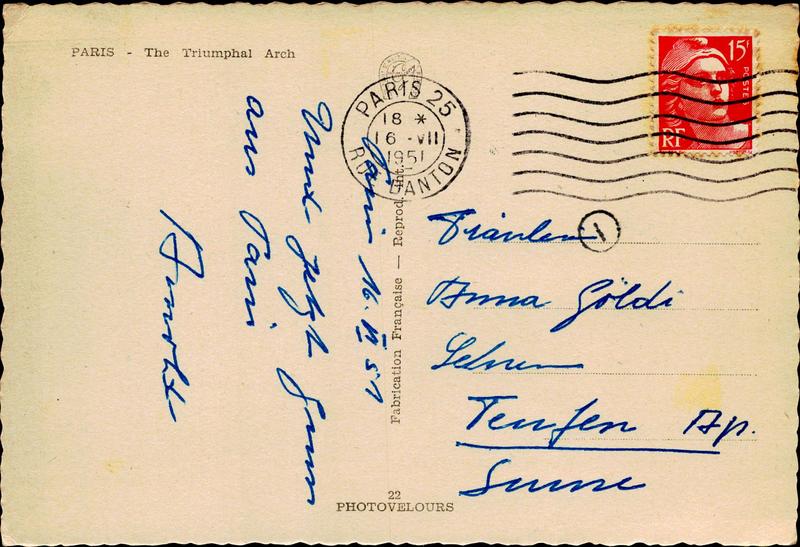 PARIS - The Triumphal Arch
PARIS 25
18 *
16 -VII
1951
RUE DANTON
15F
POSTES
RF
Paris 16. VII 51
Und jetzt
aus Paris
Fabrication Française — Reprod. Int.
Fräulein
1
Anna Göldi
Teufen Ap.
Suisse
22
PHOTOVELOURS